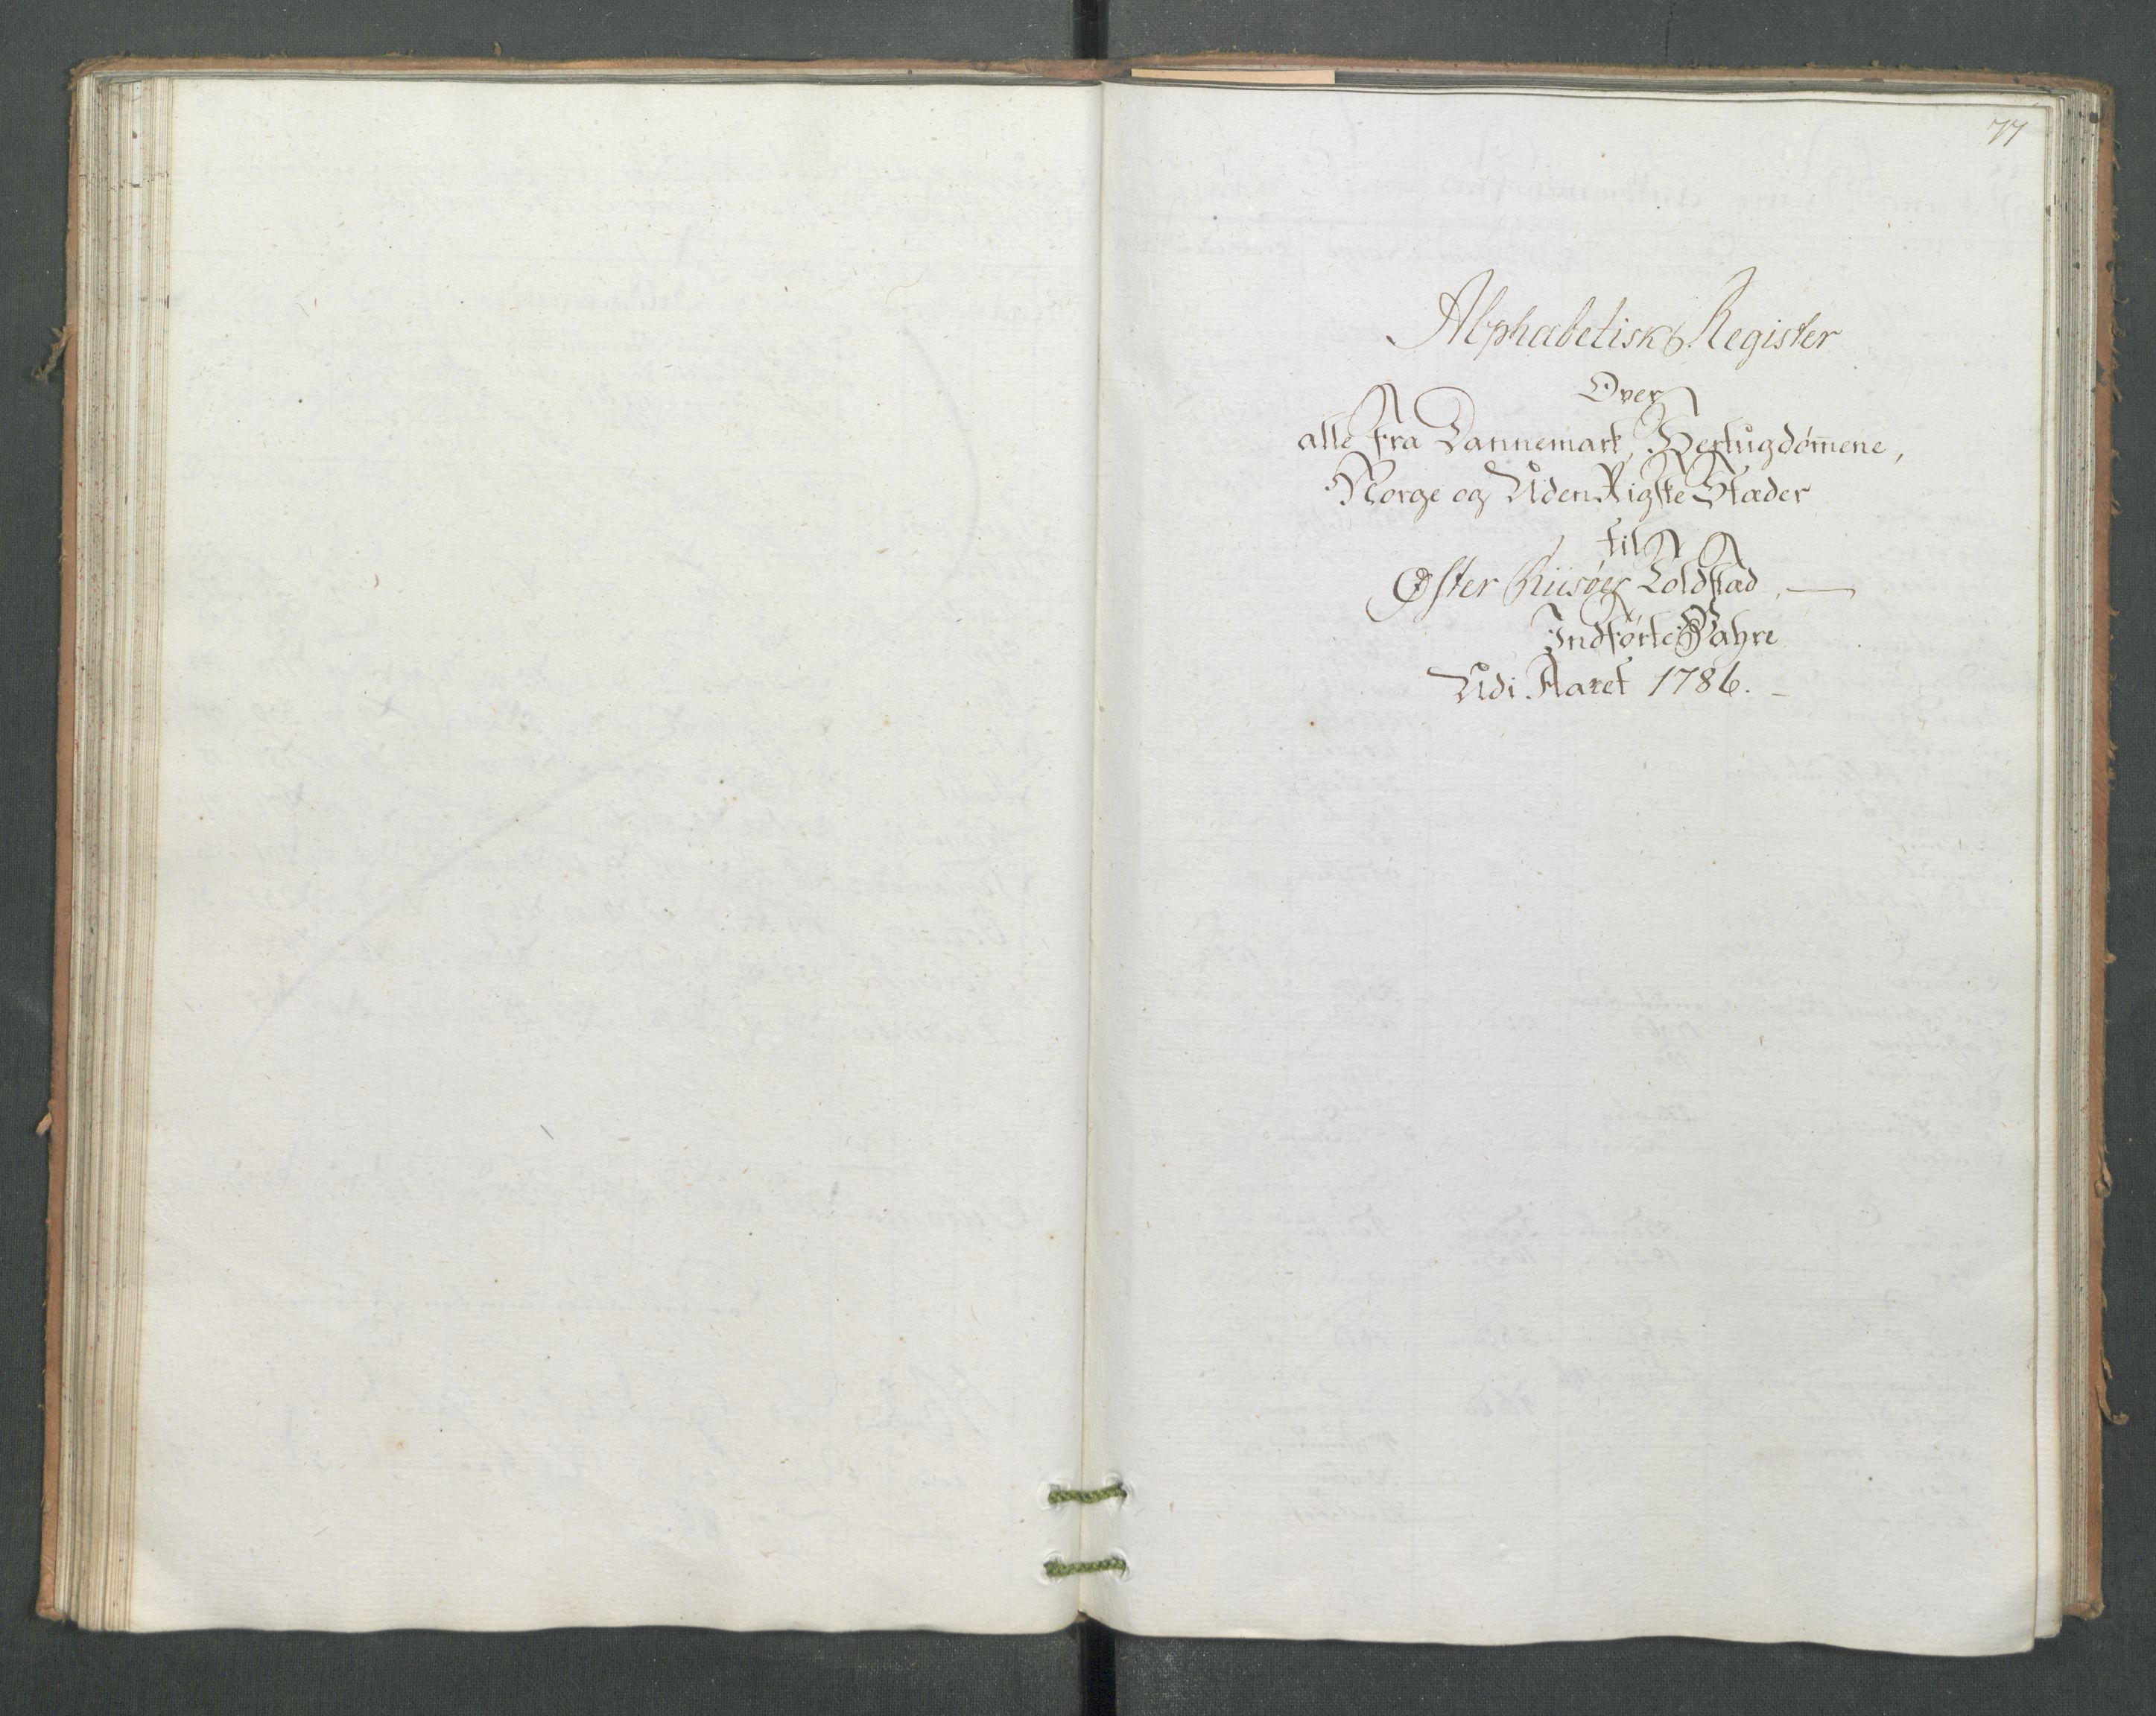 77
Alphabetisk Register
Over
alle fra Dannemark, Hertugdom̅ene,
Norge og UdenRigske Stæder
til
Øster Riisøer Toldstæd
Indførte Vahre
Udi Aaret 1786.